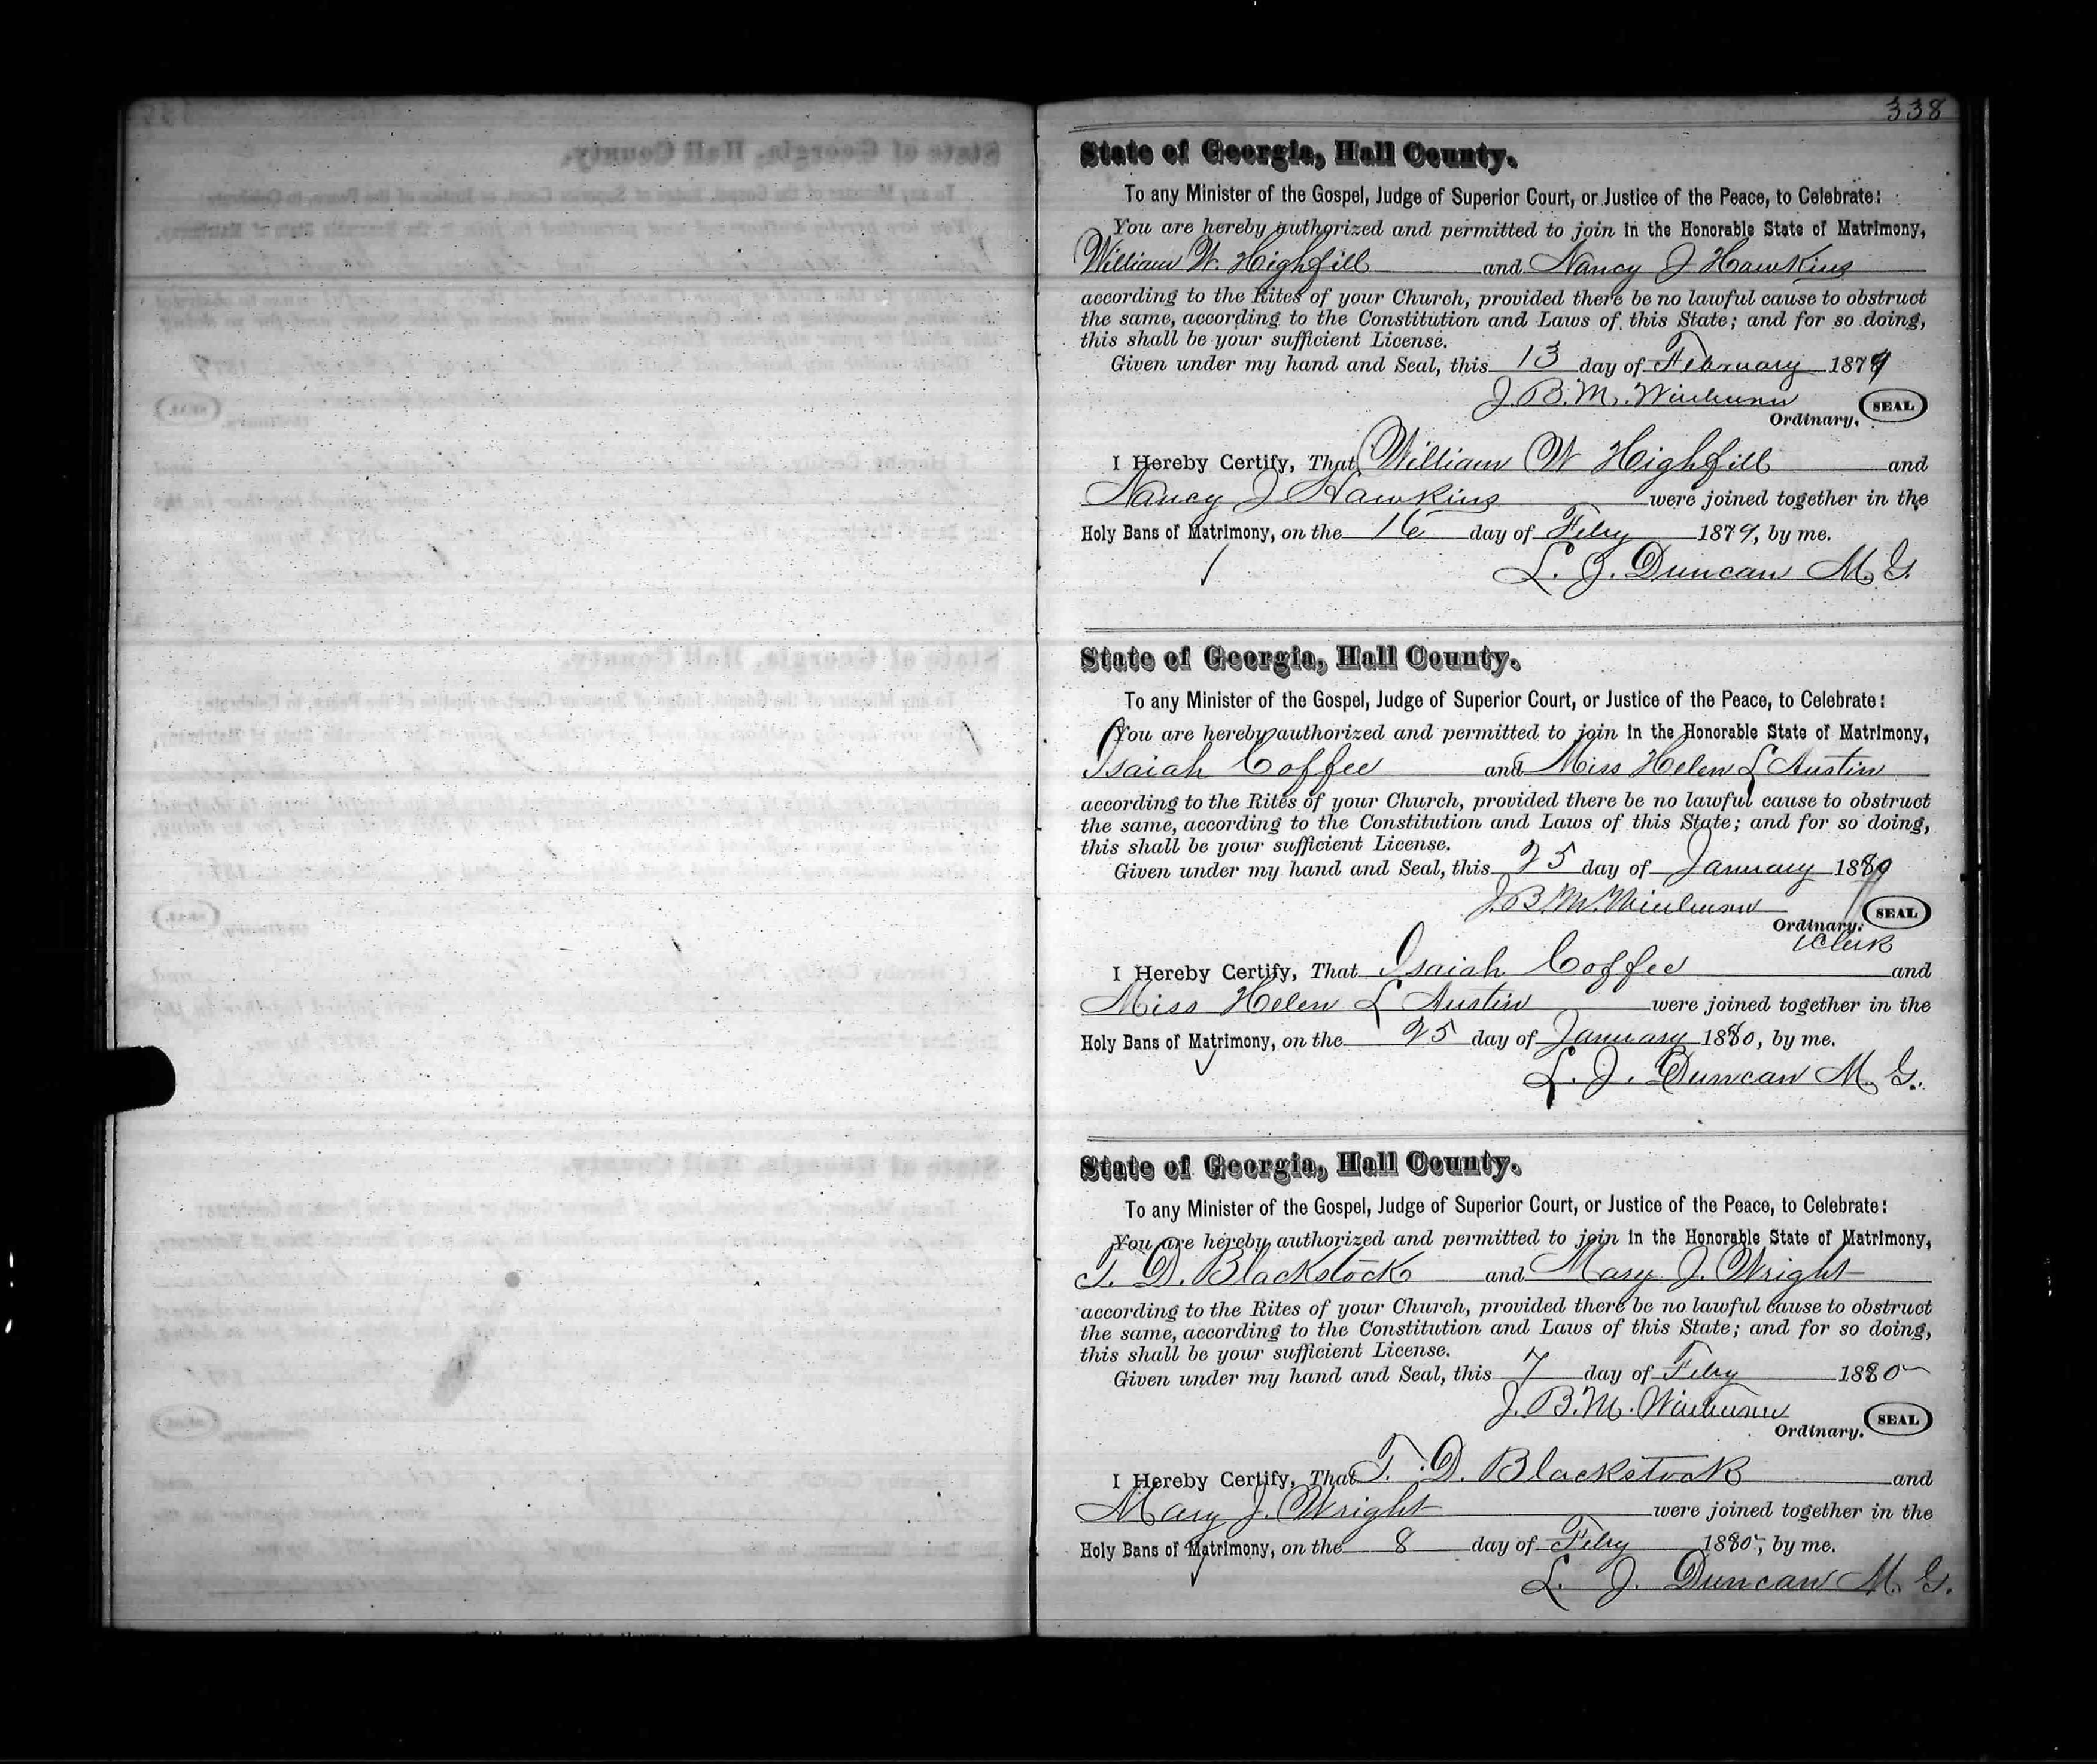 338
State of Georgia, Hall County.
To any Minister of the Gospel, Judge of Superior Court, or Justice of the Peace, to Celebrate:
You are hereby authorized and permitted to join in the Honorable State of Matrimony,
William W. Highfill and Nancy J Hawkins
according to the Rites of your Church, provided there be no lawful cause to obstruct
the same, according to the Constitution and Laws of this State; and for so doing,
this shall be your sufficient License.
Given under my hand and Seal, this 13 day of February 1879
J. B. M. Winburn
Ordinary. SEAL
I Hereby Certify, That William W Highfill and
Nancy J Hawkins were joined together in the
Holy Bans of Matrimony, on the 16 day of Feby 1879, by me.
L. J. Duncan M. G.
State of Georgia, Hall County.
To any Minister of the Gospel, Judge of Superior Court, or Justice of the Peace, to Celebrate:
You are hereby authorized and permitted to join in the Honorable State of Matrimony,
Isaiah Coffee and Miss Helen L Austin
according to the Rites of your Church, provided there be no lawful cause to obstruct
the same, according to the Constitution and Laws of this State; and for so doing,
this shall be your sufficient License.
Given under my hand and Seal, this 25 day of January 1880
J. B. M. Winburn
Ordinary. SEAL
Clerk
I Hereby Certify, That Isaiah Coffee and
Miss Helen L Austin were joined together in the
Holy Bans of Matrimony, on the 25 day of January 1880, by me.
L. J. Duncan M. G.
State of Georgia, Hall County.
To any Minister of the Gospel, Judge of Superior Court, or Justice of the Peace, to Celebrate:
You are hereby authorized and permitted to join in the Honorable State of Matrimony,
T. D. Blackstock and Mary J. Wright
according to the Rites of your Church, provided there be no lawful cause to obstruct
the same, according to the Constitution and Laws of this State; and for so doing,
this shall be your sufficient License.
Given under my hand and Seal, this 7 day of Feby 1880
J. B. M. Winburn
Ordinary. SEAL
I Hereby Certify, That T. D. Blackstock and
Mary J. Wright were joined together in the
Holy Bans of Matrimony, on the 8 day of Feby 1880, by me.
L. J. Duncan M. G.